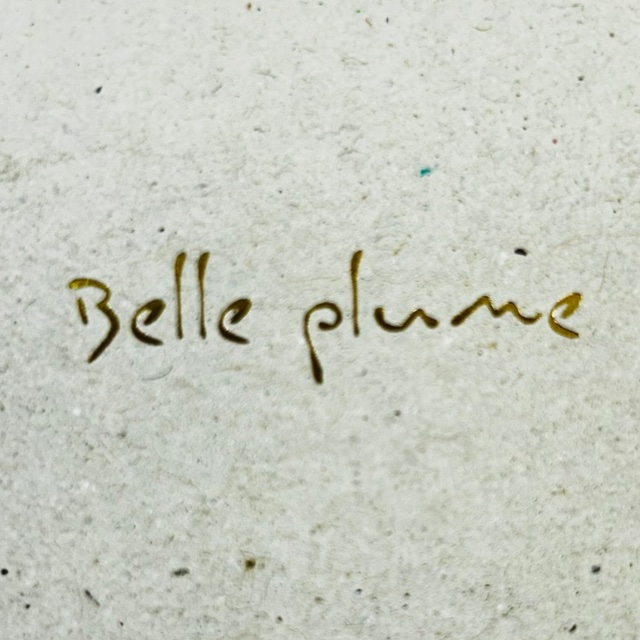 Belle plume